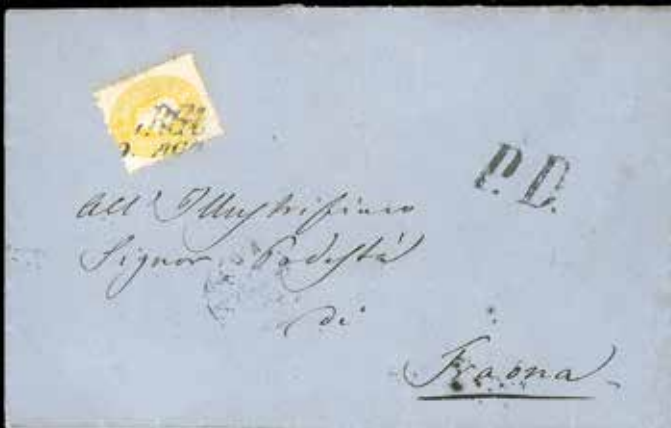 P. D.
all' Illustrissimo
Signor Podestà
di